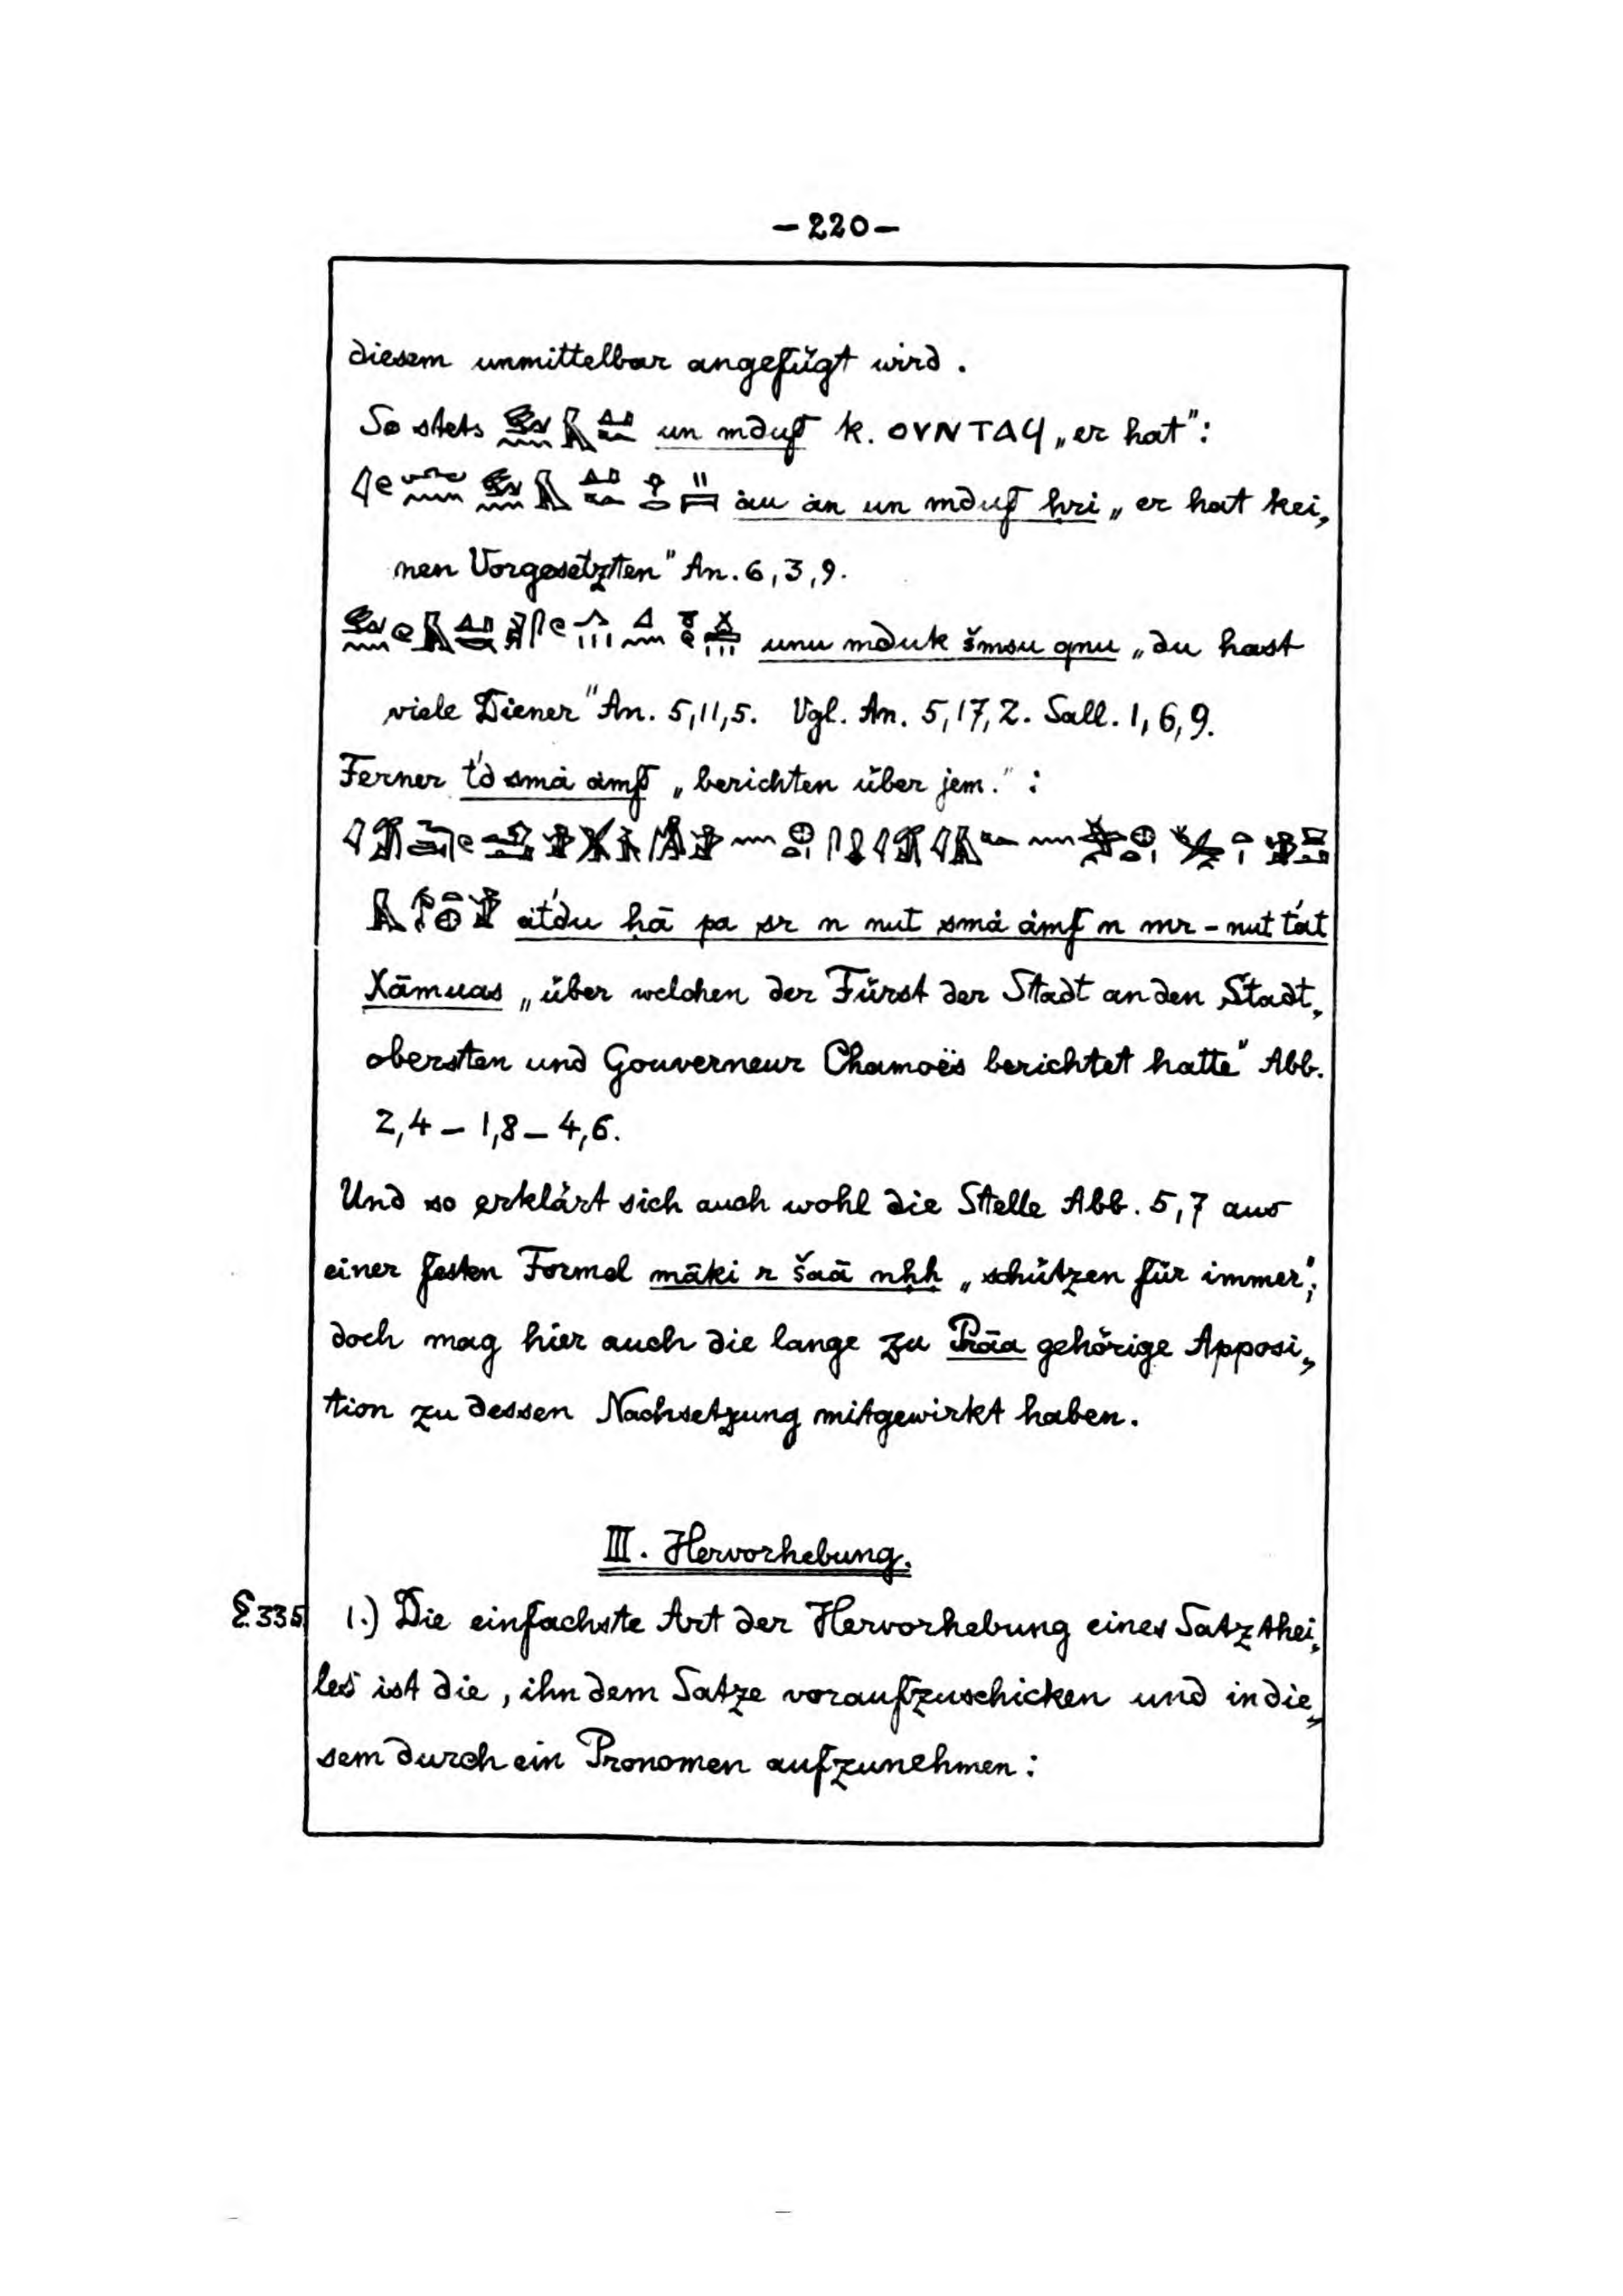 –220–
diesem unmittelbar angefügt wird.
So stets un mduf k. ΟΥΝΤΑϤ „er hat":
àu àn un mduf ḥri „er hat kei„
nen Vorgesetzten" An. 6,3,9.
unu mduk šmsu qnu „du hast
viele Diener" An. 5,11,5. Vgl. An. 5,17,2. Sall. 1,6,9.
Ferner t'd smà àmf „berichten über jem.":
àt'du ḥā pa sr n nut smà àmf n mr-nut t'at
Xāmuas „über welchen der Fürst der Stadt an den Stadt„
obersten und Gouverneur Chamoës berichtet hatte" Abb.
2,4 – 1,8 – 4,6.
Und so erklärt sich auch wohl die Stelle Abb. 5,7 aus
einer festen Formel māki r šaā nḥḥ „schützen für immer";
doch mag hier auch die lange zu Prāa gehörige Apposi„
tion zu dessen Nachsetzung mitgewirkt haben.
III. Hervorhebung.
§.335 1.) Die einfachste Art der Hervorhebung eines Satzthei„
les ist die, ihn dem Satze voraufzuschicken und in die„
sem durch ein Pronomen aufzunehmen: